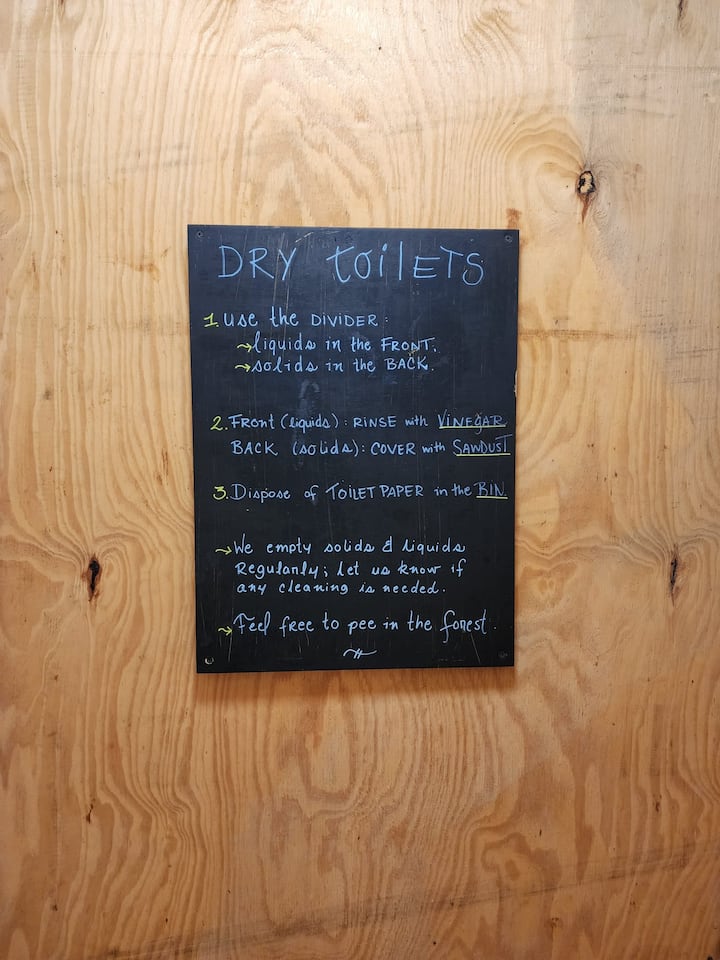 DRY toilets
1. use the DIVIDER:
→liquids in the FRONT.
→solids in the BACK.
2. Front (liquids): RINSE with VINEGAR
BACK (solids): COVER with SAWDUST
3. Dispose of TOILET PAPER in the BIN
→We empty solids & liquids
Regularly; let us know if
any cleaning is needed.
→Feel free to pee in the forest.